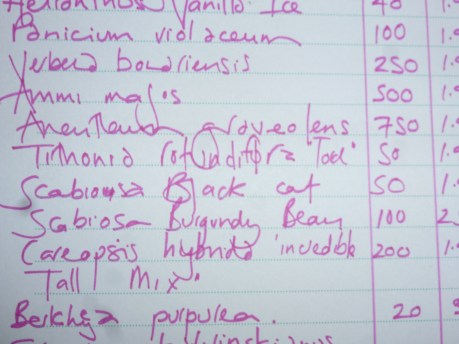 Helianthus Vanilla Ice 40 1.
Panicium violaceum 100 1.9
Verbena bonariensis 250 1.9
Ammi majis 500 1.9
graveolens 750 1.9
Tithonia 'Torch' 50 1.9
Scabiousa Black cat 50 1.9
Scabiosa Burgundy Beau 100 2.
Coreopsis hybrida 'incredible 200 1.9
Tall Mix'
Berkheya purpurea. 20